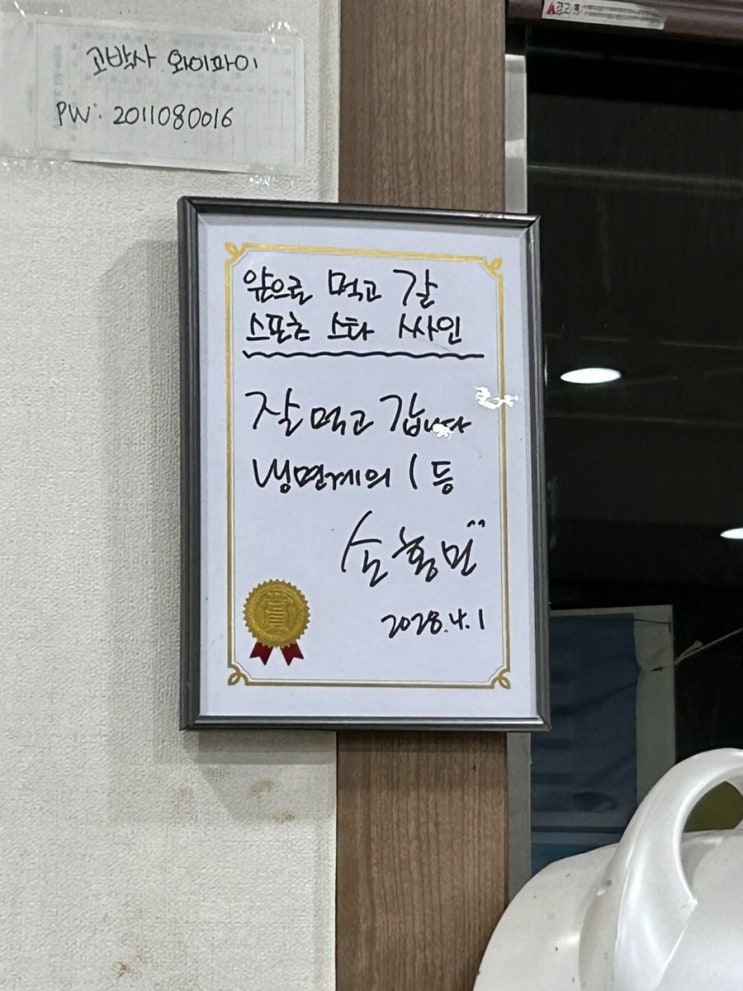 고박사 와이파이
PW: 2011080016
앞으로 먹고 갈
스포츠 스타 싸인
잘 먹고 갑니다
냉면계의 1등
손흥민^^
2028.4.1